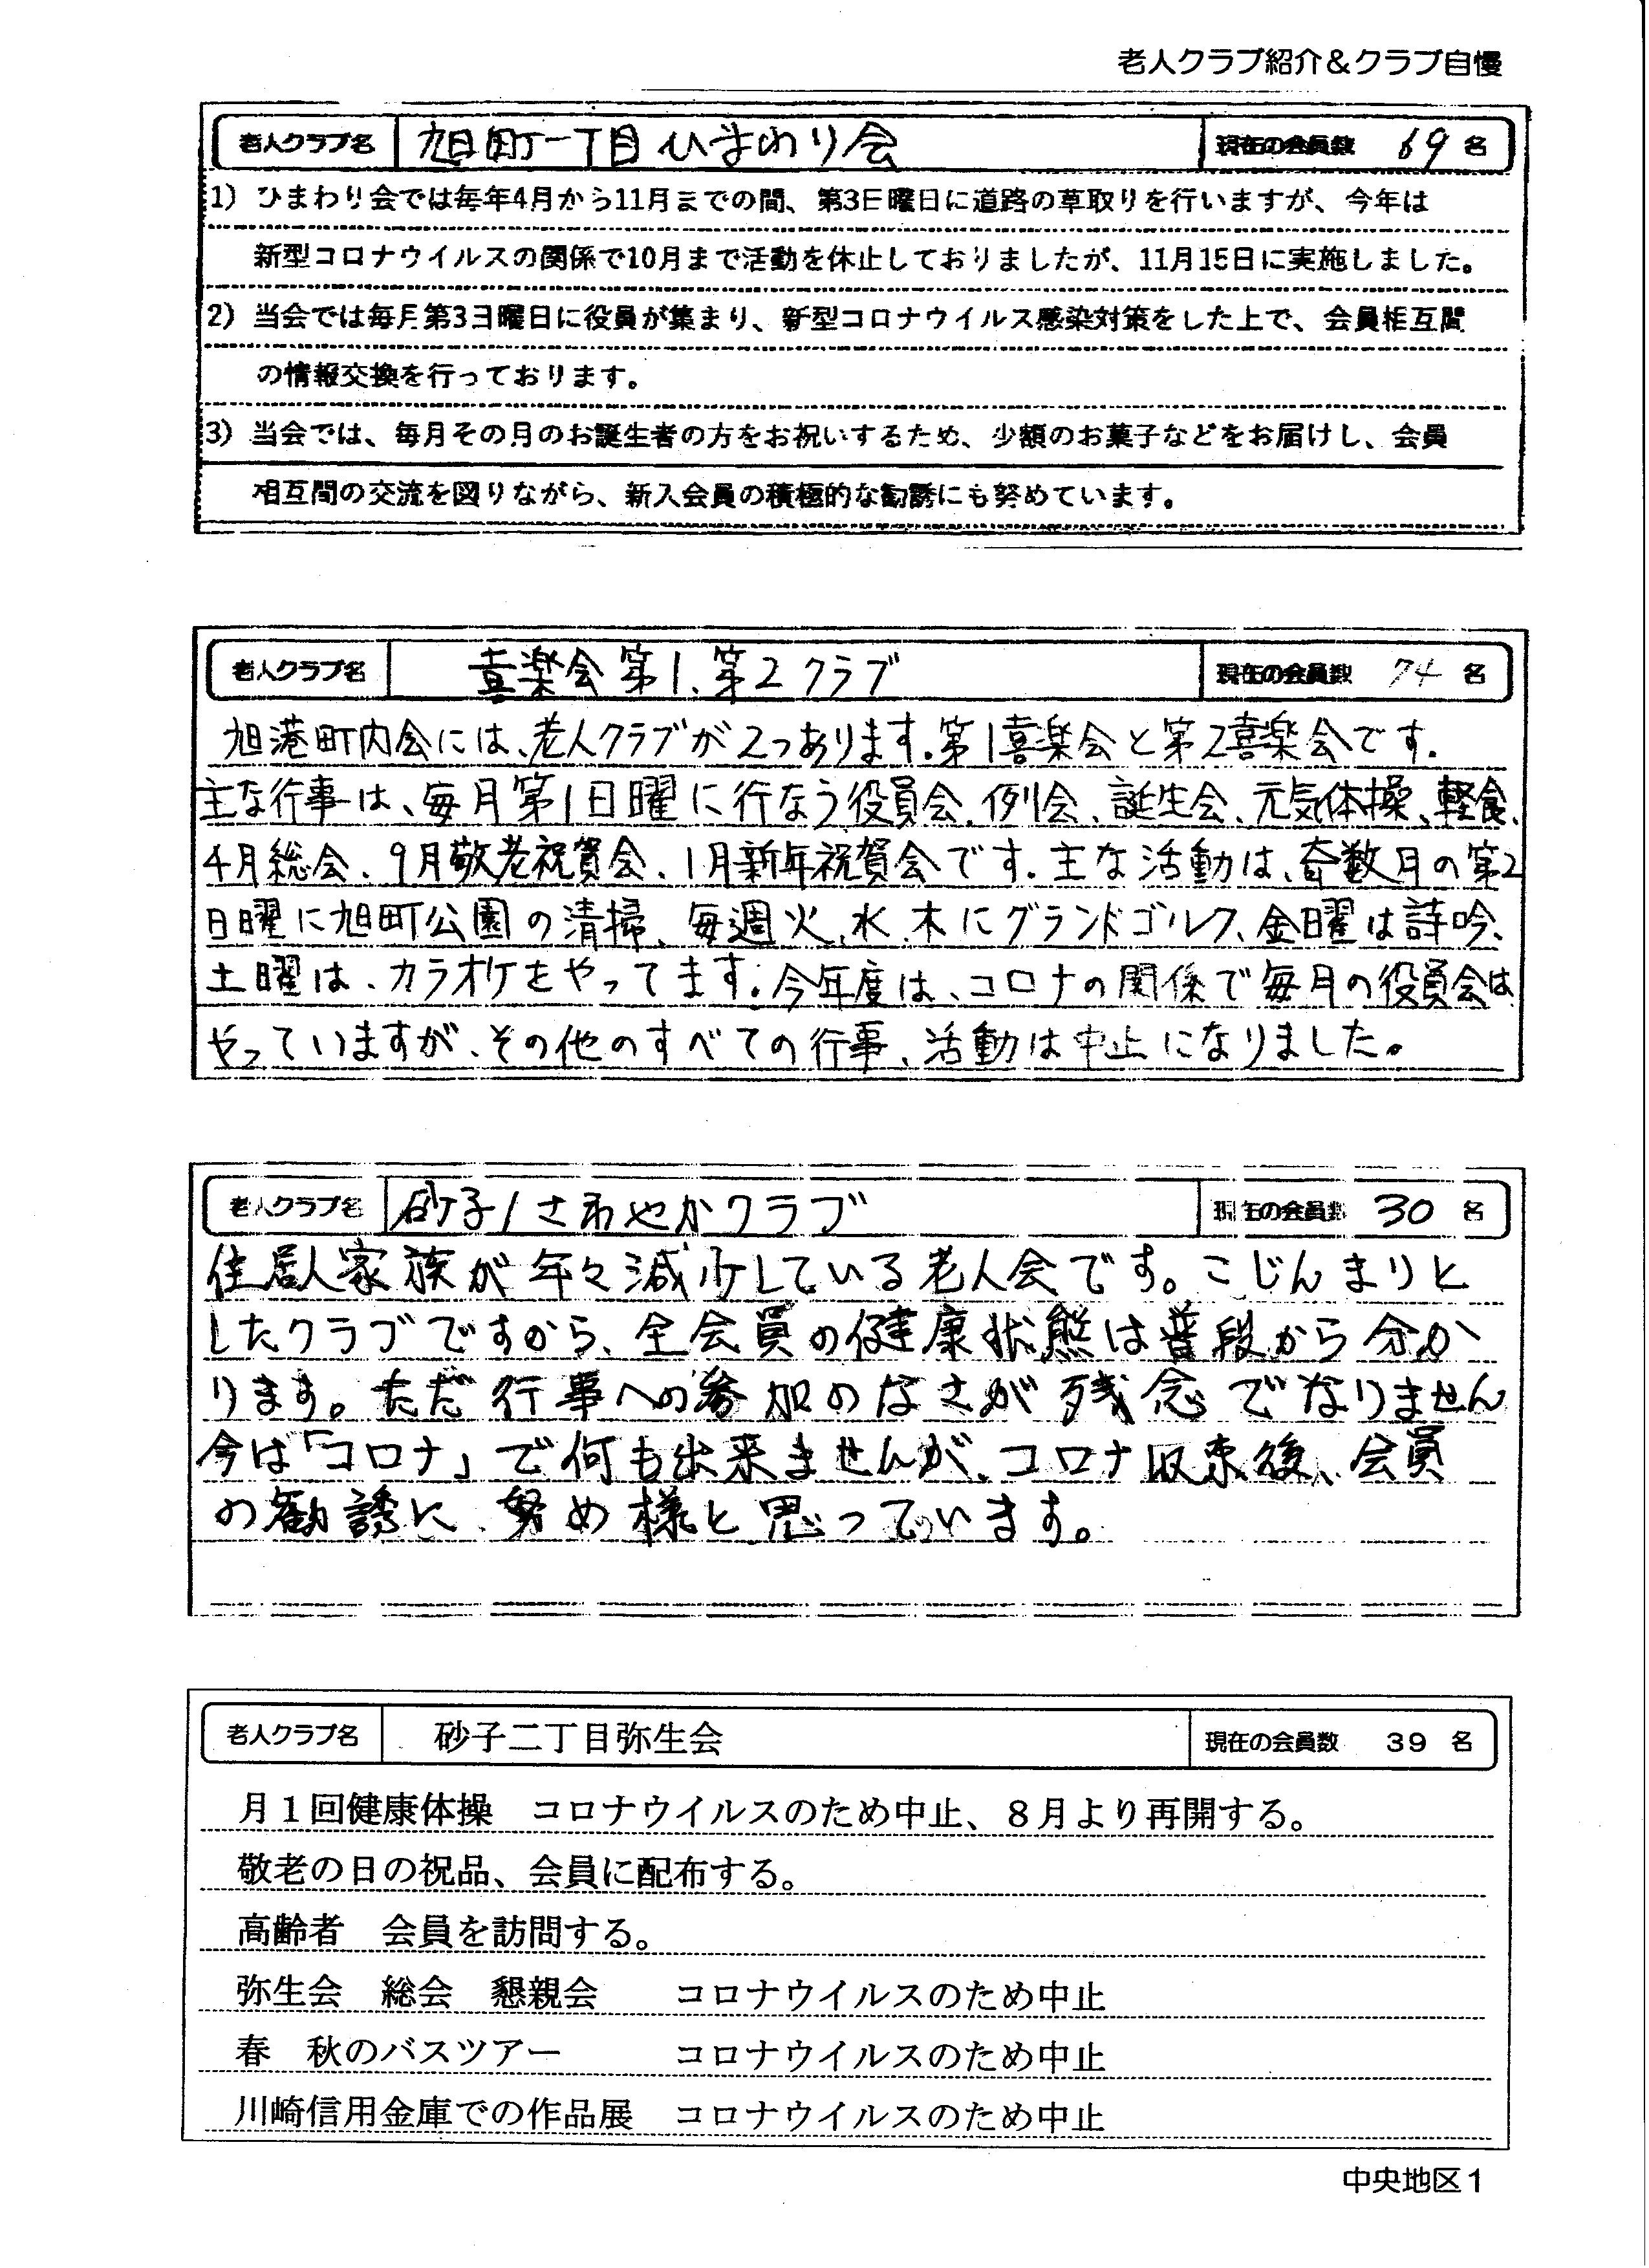 老人クラブ紹介&クラブ自慢
老人クラブ名 旭町一丁目ひまわり会 現在の会員数 69 名
1) ひまわり会では毎年4月から11月までの間、第3日曜日に道路の草取りを行いますが、今年は
新型コロナウイルスの関係で10月まで活動を休止しておりましたが、11月15日に実施しました。
2) 当会では毎月第3日曜日に役員が集まり、新型コロナウイルス感染対策をした上で、会員相互間
の情報交換を行っております。
3) 当会では、毎月その月のお誕生者の方をお祝いするため、少額のお菓子などをお届けし、会員
相互間の交流を図りながら、新入会員の積極的な勧誘にも努めています。
老人クラブ名 喜楽会第1、第2クラブ 現在の会員数 74 名
旭港町内会には、老人クラブが2つあります。第1喜楽会と第2喜楽会です。
主な行事は、毎月第1日曜に行なう役員会、例会、誕生会、元気体操、軽食、
4月総会、9月敬老祝賀会、1月新年祝賀会です。主な活動は、奇数月の第2
日曜に旭町公園の清掃、毎週火、水、木にグランドゴルフ、金曜は詩吟、
土曜は、カラオケをやってます。今年度は、コロナの関係で毎月の役員会は
やっていますが、その他のすべての行事、活動は中止になりました。
老人クラブ名 砂子1さわやかクラブ 現在の会員数 30 名
住居人家族が年々減少している老人会です。こじんまりと
したクラブですから、全会員の健康状態は普段から分か
ります。ただ行事への参加のなさが残念でなりません
今は「コロナ」で何も出来ませんが、コロナ収束後、会員
の勧誘に努め様と思っています。
老人クラブ名 砂子二丁目弥生会 現在の会員数 39 名
月1回健康体操 コロナウイルスのため中止、8月より再開する。
敬老の日の祝品、会員に配布する。
高齢者 会員を訪問する。
弥生会 総会 懇親会 コロナウイルスのため中止
春 秋のバスツアー コロナウイルスのため中止
川崎信用金庫での作品展 コロナウイルスのため中止
中央地区1